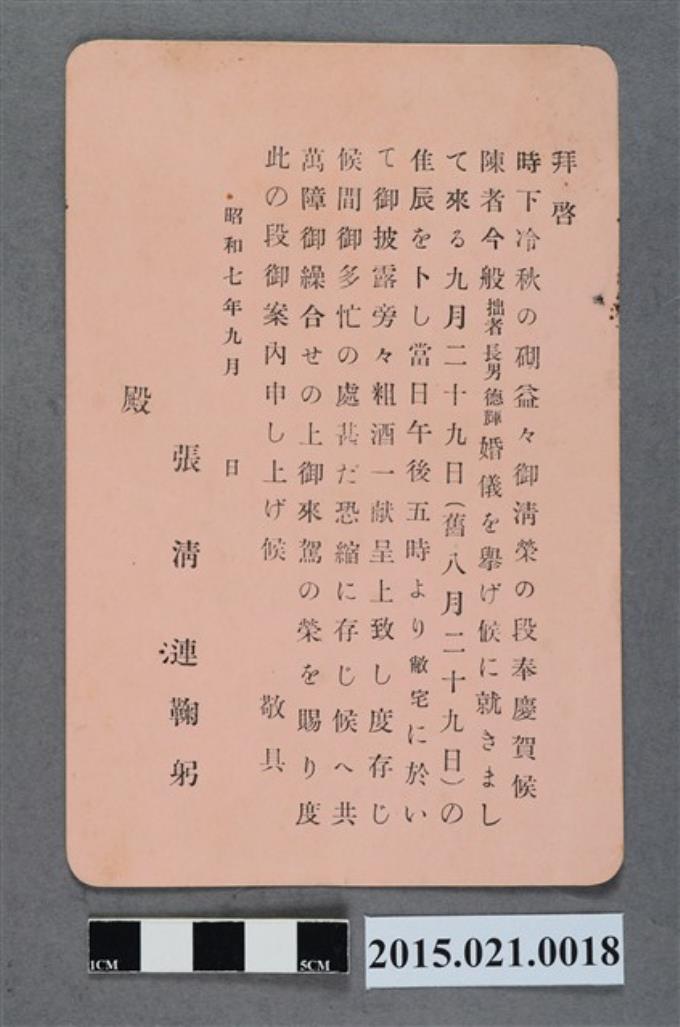 拜啓
時下冷秋の砌益々御淸榮の段奉慶賀候
陳者今般拙者長男德輝婚儀を擧げ候に就きまし
て來る九月二十九日(舊八月二十九日)の
隹辰を卜し當日午後五時より敝宅に於い
て御披露旁々粗酒一献呈上致し度存じ
候間御多忙の處甚だ恐縮に存じ候へ共
萬障御繰合せの上御來駕の榮を賜り度
此の段御案內申し上げ候 敬具
昭和七年九月 日
張淸漣鞠躬
殿
1CM 5CM
2015.021.0018